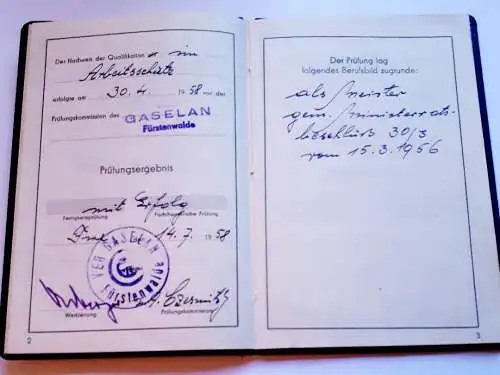 Der Nachweis der Qualifikation im
Arbeitsschutz
erfolgte am 30.4. 1958 vor der
Prüfungskommission des GASELAN
Fürstenwalde
Prüfungsergebnis
mit Erfolg
Fertigkeitsprüfung Fachtheoretische Prüfung
14.7. 1958
VEB GASELAN Fürstenwalde
Werkleitung Prüfungskommission
2
Der Prüfung lag
folgendes Berufsbild zugrunde:
als Meister
gem. Ministerrats-
beschluß 30/3
vom 15.3.1956
3